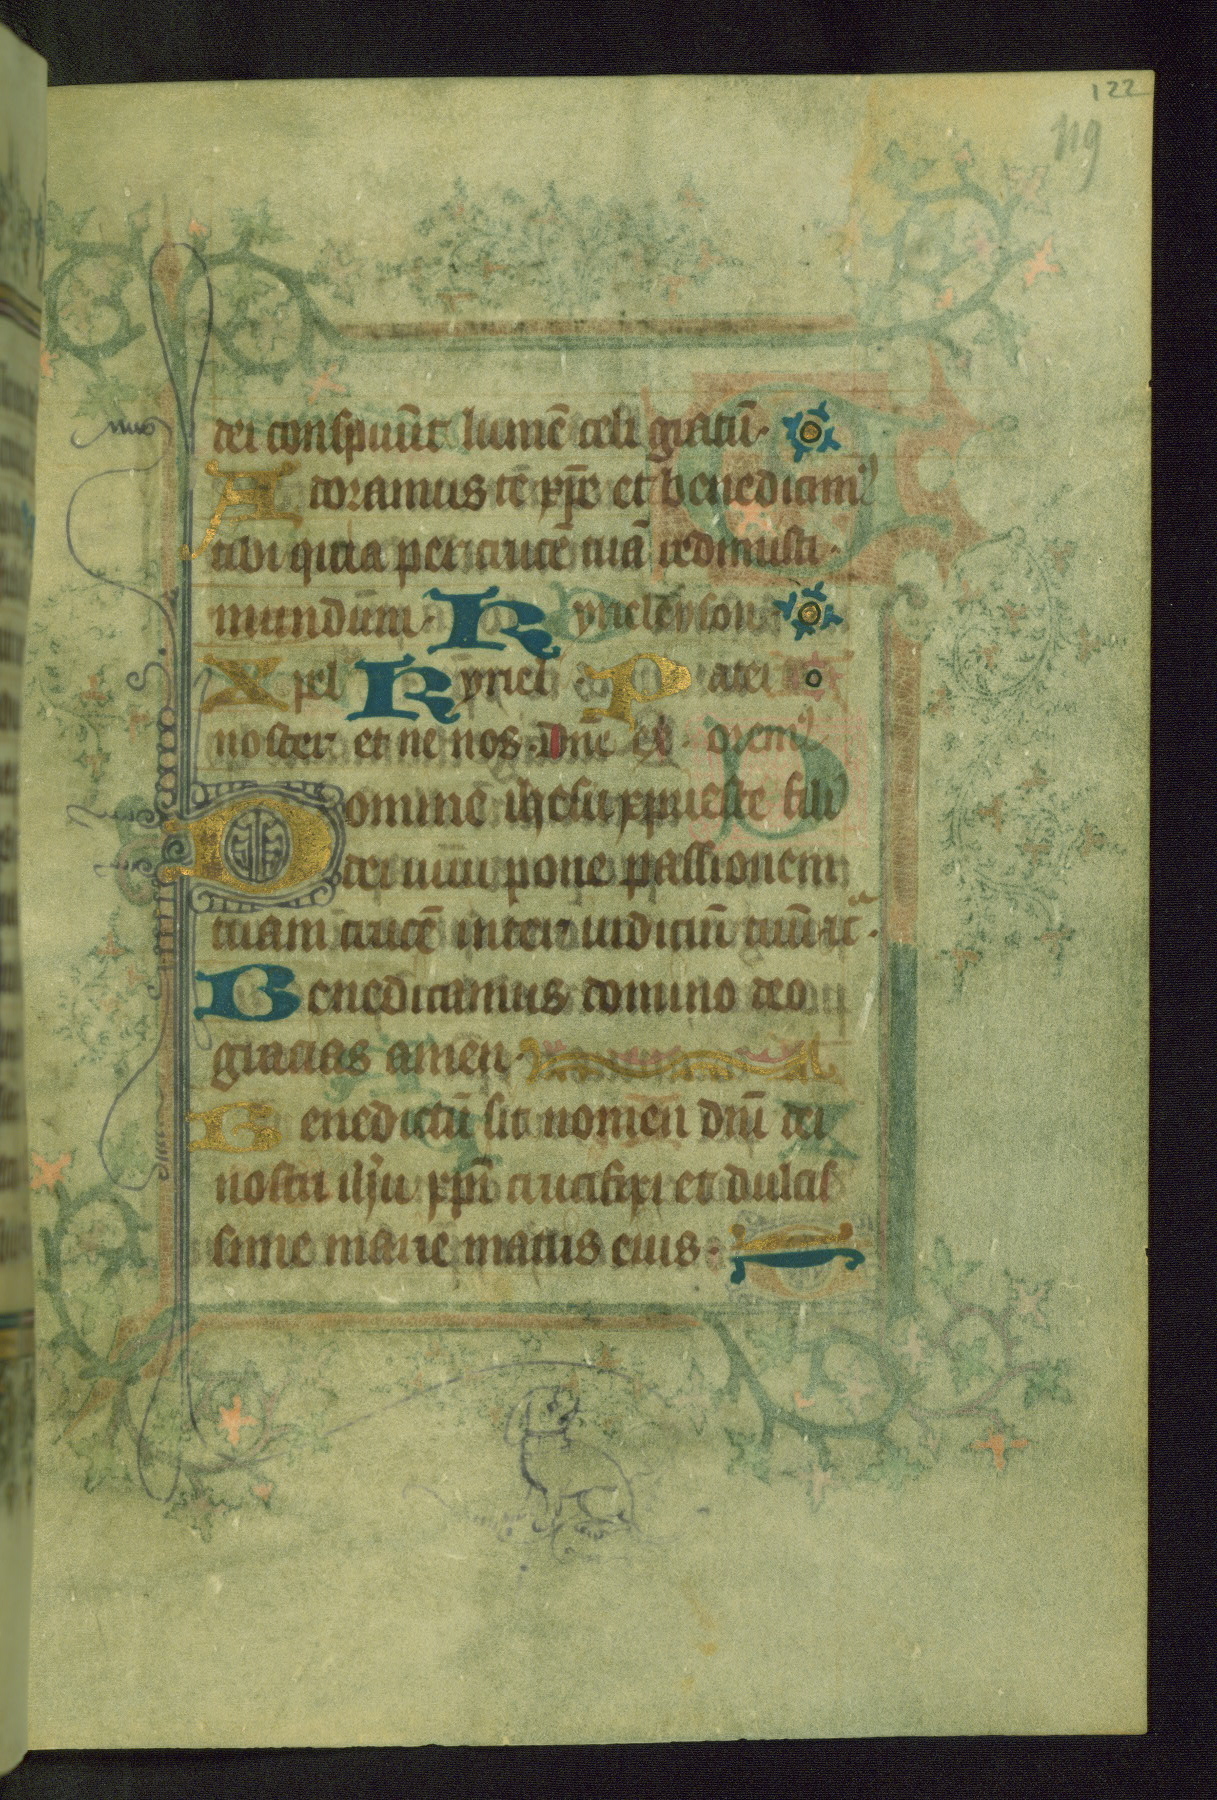 122
119
dei conspuu̅t lume̅ celi gratu̅.
Adoramus te̅ xp̅e et benedicim9
tibi quia per cruce̅ tua̅ redimisti.
mundum. Kyrieleyson.
Xpel Kyriel. Pater
noster et ne nos. Dn̅e ex. orem9
Domine ihesu xp̅i
pone passionem
tuam cruce̅ inter iudiciu̅ tuu̅
Benedicamus domino deo
gracias amen.
Benedictu̅ sit nomen dn̅i dei
nostri ih̅u xp̅i crucifixi et dulcis
sime marie matris eius.